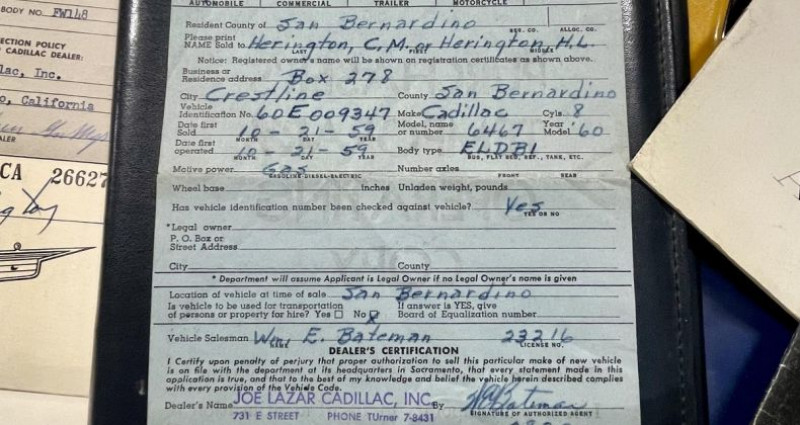 BODY NO. FW148
ECTION POLICY
CADILLAC DEALER:
lac, Inc.
o, California
ALER
CA 26627
AUTOMOBILE COMMERCIAL TRAILER MOTORCYCLE
Resident County of San Bernardino
RES. CO. ALLOC. CO.
Please print
NAME Sold to Herington, C. M. or Herington, H. L.
LAST FIRST MIDDLE
Notice: Registered owner's name will be shown on registration certificates as shown above.
Business or
Residence address Box 278
City Crestline County San Bernardino
Vehicle
Identification No. 60E009347 Make Cadillac Cyls. 8
Date first
Sold 10-21-59 Model, name or number 6467 Year Model '60
MONTH DAY YEAR
Date first
operated 10-21-59 Body type ELDBI
MONTH DAY YEAR BUS, FLAT BED, REF., TANK, ETC.
Motive power Gas Number axles
GASOLINE-DIESEL-ELECTRIC FRONT REAR
Wheel base inches Unladen weight, pounds
Has vehicle identification number been checked against vehicle? Yes
YES OR NO
*Legal owner
P. O. Box or
Street Address
City County
* Department will assume Applicant is Legal Owner if no Legal Owner's name is given
Location of vehicle at time of sale San Bernardino
Is vehicle to be used for transportation If answer is YES, give
of persons or property for hire? Yes No Board of Equalization number
Vehicle Salesman Wm E. Bateman 23216
NAME LICENSE NO.
DEALER'S CERTIFICATION
I Certify upon penalty of perjury that proper authorization to sell this particular make of new vehicle
is on file with the department at its headquarters in Sacramento, that every statement made in this
application is true, and that to the best of my knowledge and belief the vehicle herein described complies
with every provision of the Vehicle Code.
Dealer's Name JOE LAZAR CADILLAC, INC. By Bateman
731 E STREET PHONE TUrner 7-8431 SIGNATURE OF AUTHORIZED AGENT